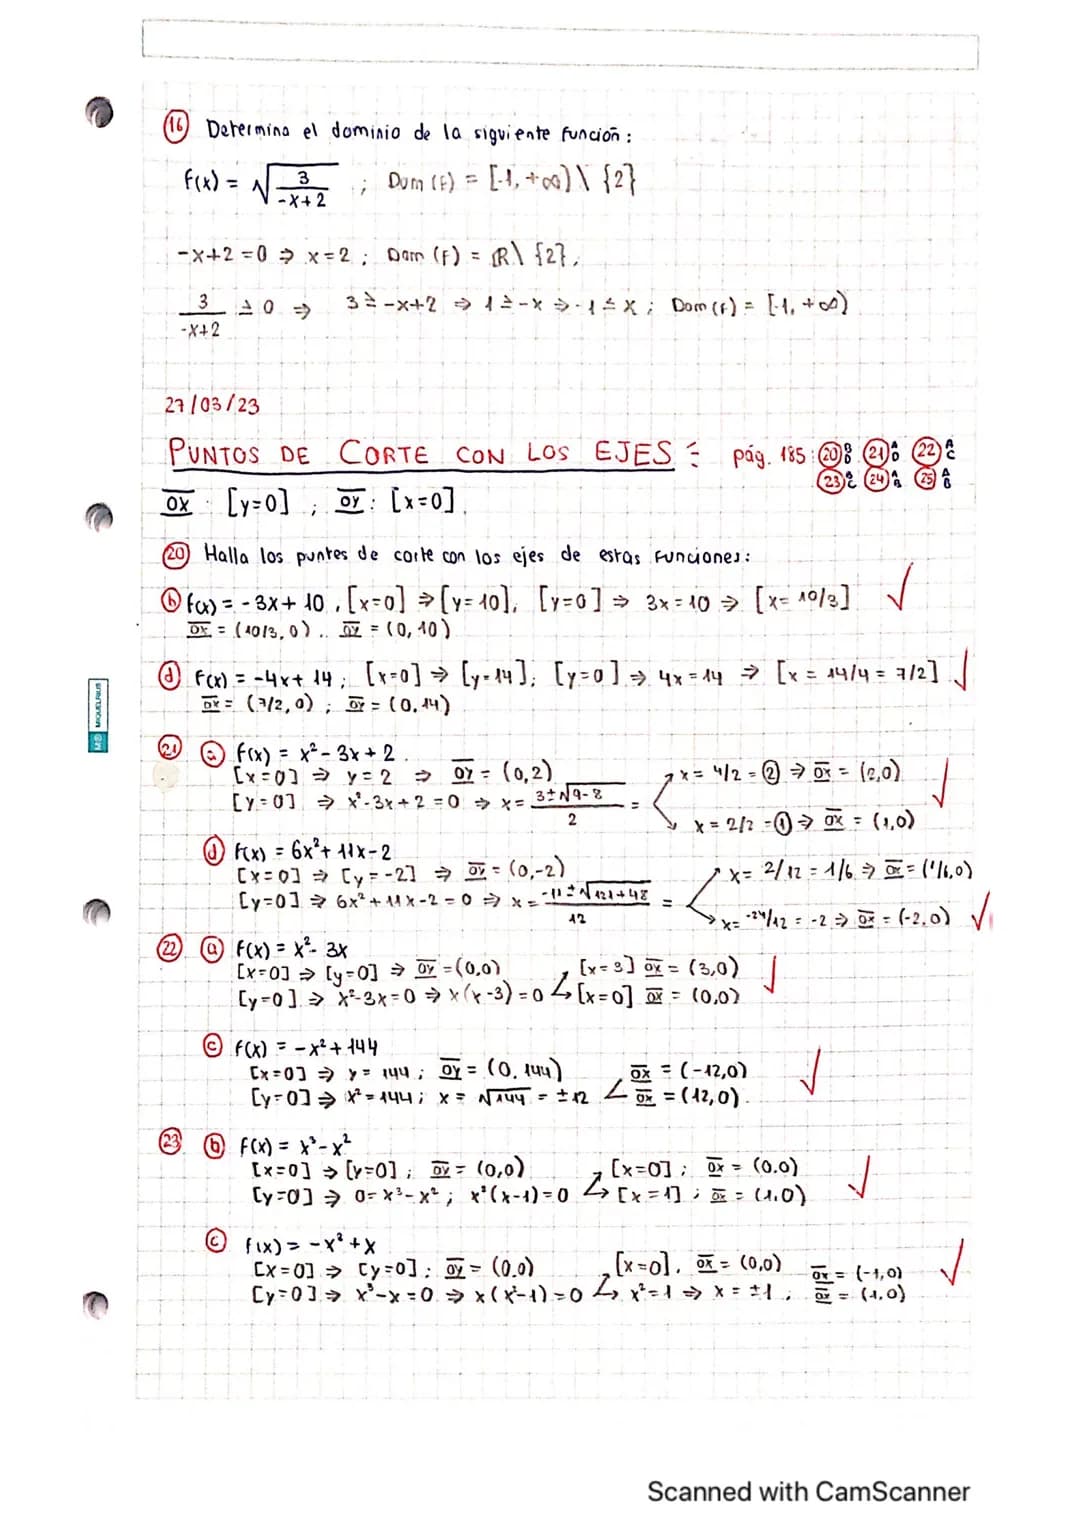 16 Determina el dominio de la siguiente función:
f(x) = √(3/(-x+2)) ; Dom (f) = [-1, +∞) \ {2}
-x+2 = 0 ⇒ x = 2 ; Dom (f) = ℝ \ {2},
3/(-x+2) ≥ 0 ⇒ 3 ≥ -x+2 ⇒ 1 ≥ -x ⇒ -1 ≤ x ; Dom (f) = [-1, +∞)
27/03/23
PUNTOS DE CORTE CON LOS EJES: pág. 185: 20 B D 21 A D 22 A C
23 B C 24 A B 25 A B
OX : [y=0] ; OY : [x=0]
20 Halla los puntos de corte con los ejes de estas funciones:
b f(x) = -3x + 10, [x=0] ⇒ [y=10], [y=0] ⇒ 3x = 10 ⇒ [x = 10/3]
OX = (10/3, 0) .. OY = (0, 10)
d f(x) = -4x + 14; [x=0] ⇒ [y=14]; [y=0] ⇒ 4x = 14 ⇒ [x = 14/4 = 7/2]
OX = (7/2, 0) ; OY = (0, 14)
21 a f(x) = x² - 3x + 2
[x=0] ⇒ y = 2 ⇒ OY = (0,2)
[y=0] ⇒ x² - 3x + 2 = 0 ⇒ x = (3 ± √9-8)/2 =
x = 4/2 = 2 ⇒ OX = (2,0)
x = 2/2 = 1 ⇒ OX = (1,0)
d f(x) = 6x² + 11x - 2
[x=0] ⇒ [y=-2] ⇒ OY = (0,-2)
[y=0] ⇒ 6x² + 11x - 2 = 0 ⇒ x = (-11 ± √121+48)/12 =
x = 2/12 = 1/6 ⇒ OX = (1/6, 0)
x = -24/12 = -2 ⇒ OX = (-2, 0)
22 a f(x) = x² - 3x
[x=0] ⇒ [y=0] ⇒ OY = (0,0)
[y=0] ⇒ x² - 3x = 0 ⇒ x(x-3) = 0
[x=3] OX = (3,0)
[x=0] OX = (0,0)
c f(x) = -x² + 144
[x=0] ⇒ y = 144 ; OY = (0, 144)
[y=0] ⇒ x² = 144 ; x = √144 = ±12
OX = (-12,0)
OX = (12,0).
23 b f(x) = x³ - x²
[x=0] ⇒ [y=0] ; OY = (0,0)
[y=0] ⇒ 0 = x³ - x² ; x²(x-1) = 0
[x=0] ; OX = (0.0)
[x=1] ; OX = (1,0)
c f(x) = -x² + x
[x=0] ⇒ [y=0] ; OY = (0.0)
[y=0] ⇒ x³ - x = 0 ⇒ x(x²-1) = 0
[x=0], OX = (0,0)
x² = 1 ⇒ x = ±1,
OX = (-1,0)
OX = (1,0)
MIQUELRIUS
Scanned with CamScanner